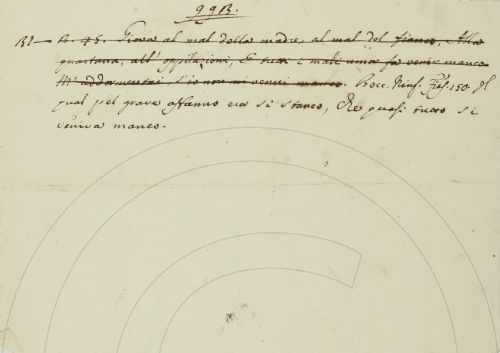 99B.
R. 45. Giova al mal della madre, al mal del fianco, Alla
quartana, all' oppilazioni, E tutti i mali una fa venir manco.
M' addormentai s'io non mi venni manco. Bocc. Ninf. Fies. 150. Il
qual pel grave affanno era sì stanco, Che quasi tutto si
veniva manco.